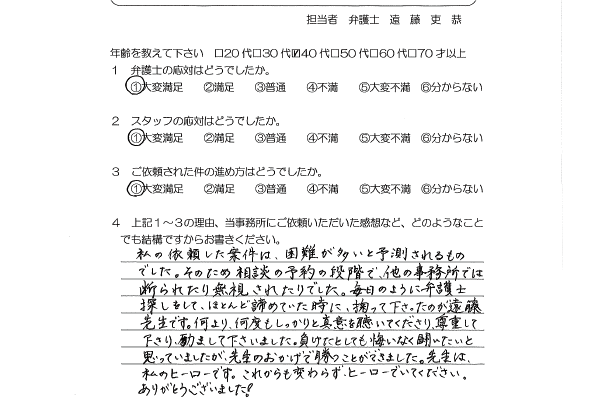 担当者　弁護士　遠　藤　吏　恭
年齢を教えて下さい　□20 代□30 代☑40 代□50 代□60 代□70 才以上
1　弁護士の応対はどうでしたか。
①大変満足　②満足　③普通　④不満　⑤大変不満　⑥分からない
2　スタッフの応対はどうでしたか。
①大変満足　②満足　③普通　④不満　⑤大変不満　⑥分からない
3　ご依頼された件の進め方はどうでしたか。
①大変満足　②満足　③普通　④不満　⑤大変不満　⑥分からない
4　上記1～3の理由、当事務所にご依頼いただいた感想など、どのようなこと
でも結構ですからお書きください。
私の依頼した案件は、困難が多いと予測されるもの
でした。そのため相談の予約の段階で、他の事務所では
断られたり無視されたりでした。毎日のように弁護士
探しをして、ほとんど諦めていた時に、拘って下さったのが遠藤
先生です。何より、何度もしっかりと真意を聴いてくださり、尊重して
下さり、励まして下さいました。負けたとしても悔いなく闘いたいと
思っていましたが、先生のおかげで勝つことができました。先生は、
私のヒーローです。これからも変わらず、ヒーローでいてください。
ありがとうございました!